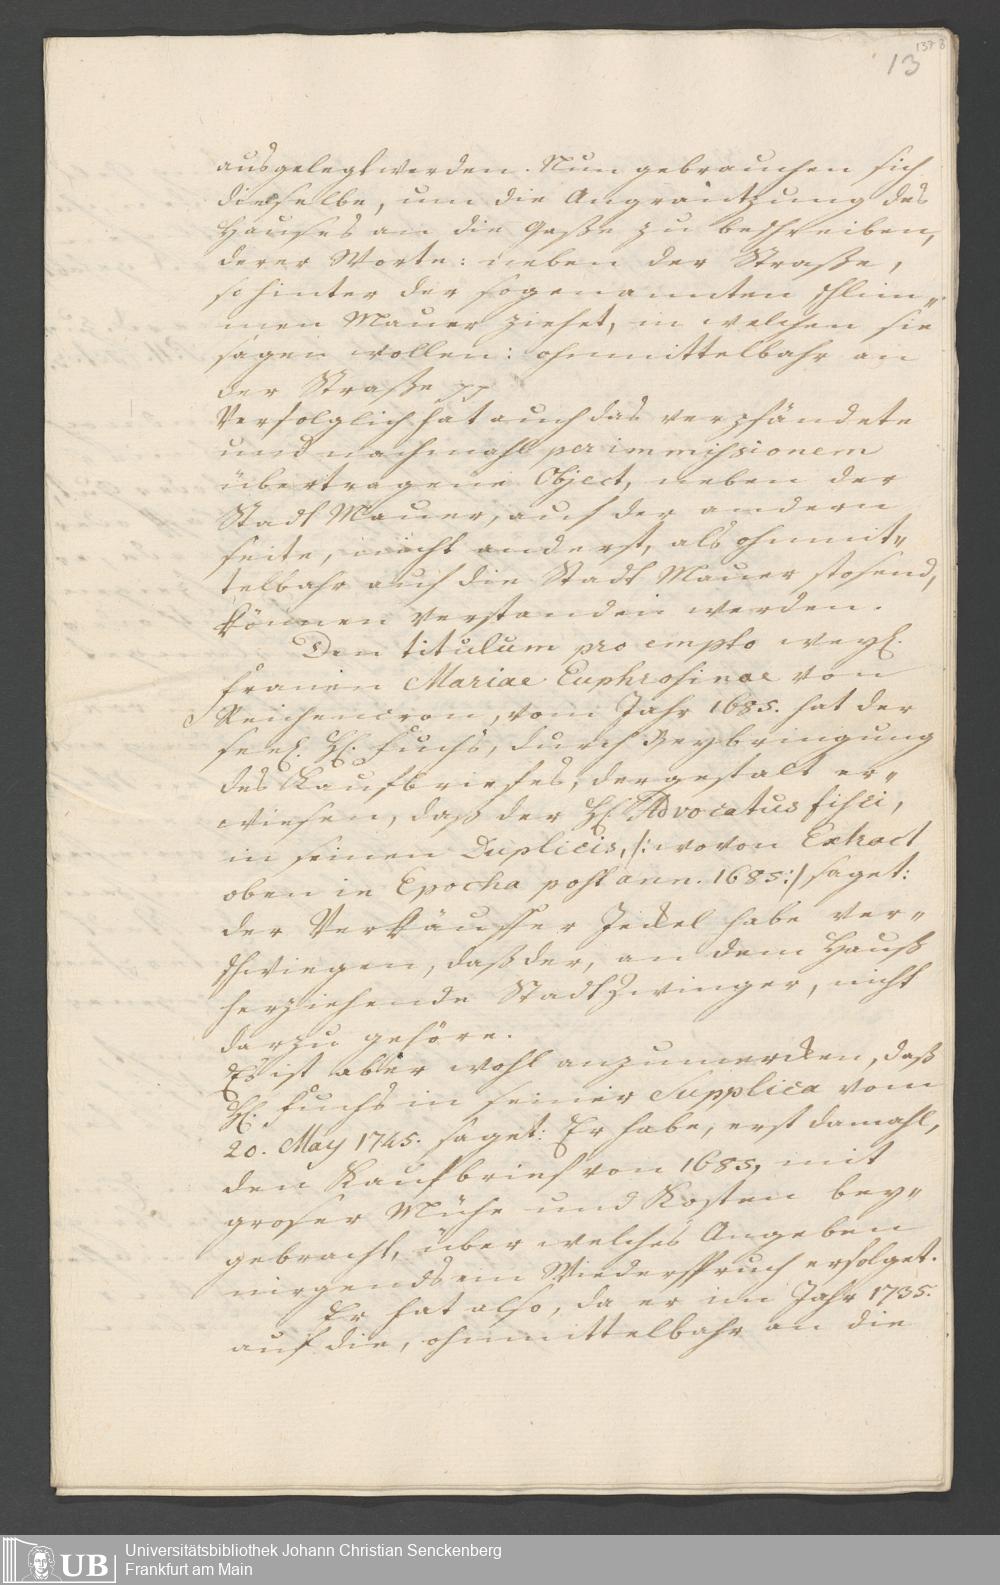 137 8
13
ausgelegt werden. Nun gebrauchen sich
dieselbe, um die Angräntzung des
Hauses an die Gaße zu beschreiben,
derer Worte: neben der Straße,
so hinter der sogenannten schlim„
men Mauer ziehet, in welchen sie
sagen wollen: ohnmittelbahr an
der Straße pp
Verfolglich hat auch das verpfändete
und nachmahl per immissionem
übertragene Object, neben der
Stadt Mauer, auf der andern
seite, nicht anderst, als ohnmit„
telbahr auf die Stadt Mauer stosend,
können verstanden werden.
Den titulum pro empto weyl.
frauen Mariae Euphrosinae von
Reichencron, vom Jahr 1685. hat der
seel. H. Fuchs, durch Beybringung
des Kaufbriefes, dergestalt er„
wiesen, daß der H. Advocatus fisci,
in seinen Duplicis, /: wovon Extract
oben in Epocha post ann. 1685:/ saget:
der Verkäuffer Jeckel habe ver„
schwiegen, daß der, an dem Hauß
herziehende Stadt Zwinger, nicht
darzu gehöre.
Es ist aber wohl anzumercken, daß
H. Fuchs in seiner Supplica vom
20. May 1745. saget: Er habe, erst damahl,
den Kaufbrief von 1685, mit
groser Mühe und Kosten bey„
gebracht, über welches Angeben
nirgends ein Wiederspruch erfolget.
Er hat also, da er im Jahr 1735.
auf die, ohnmittelbahr an die
UB
Universitätsbibliothek Johann Christian Senckenberg
Frankfurt am Main